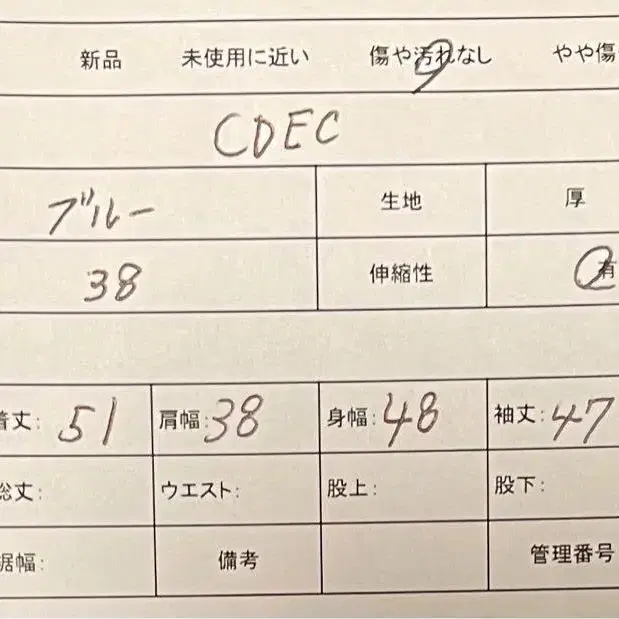 新品 未使用に近い 傷や汚れなし やや傷
CDEC
ブルー 生地 厚
38 伸縮性 有
着丈: 51 肩幅: 38 身幅: 48 袖丈: 47
総丈: ウエスト: 股上: 股下:
裾幅: 備考 管理番号